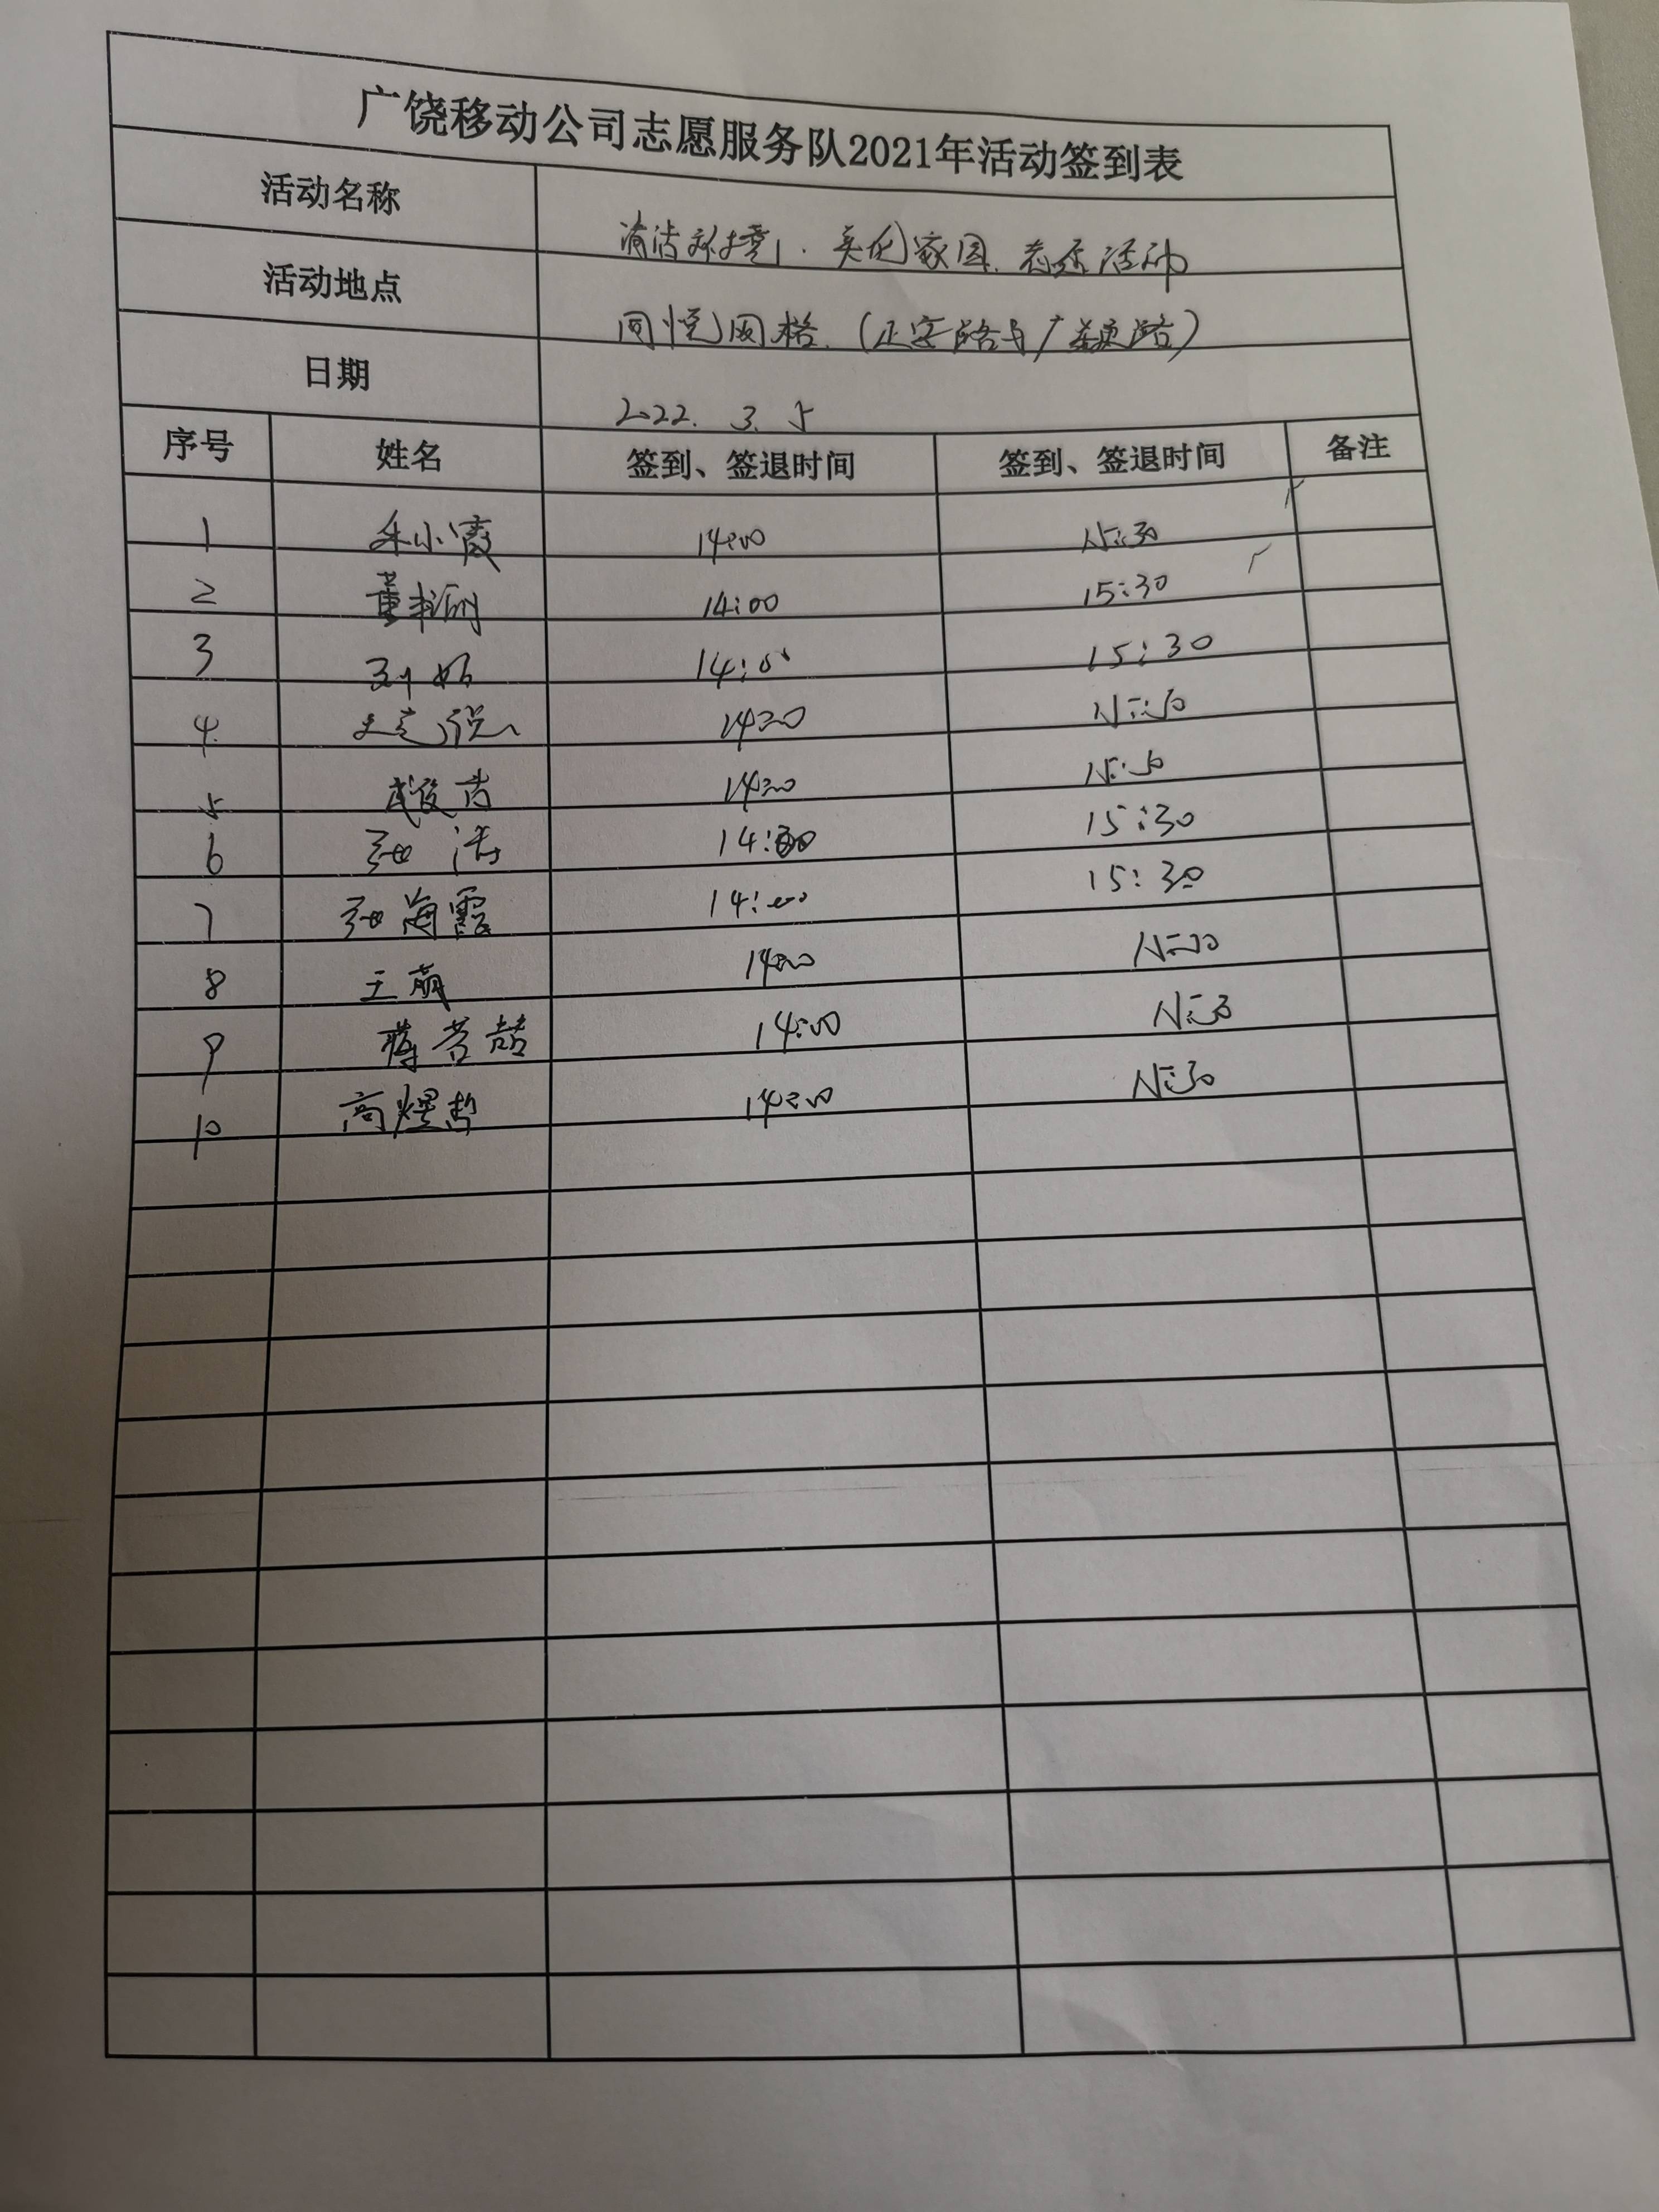 广饶移动公司志愿服务队2021年活动签到表
活动名称 清洁环境、美化家园、志愿活动
活动地点 同悦网格（正安路与广颜路）
日期 2022.3.5
序号 姓名 签到、签退时间 签到、签退时间 备注
1 朱小霞 14:00 15:30
2 董 14:00 15:30
3 14:00 15:30
4 14:00 15:30
5 14:00 15:30
6 张洁 14:00 15:30
7 张海霞 14:00 15:30
8 王萌 14:00 15:30
9 蒋 喆 14:00 15:30
10 高煜哲 14:00 15:30